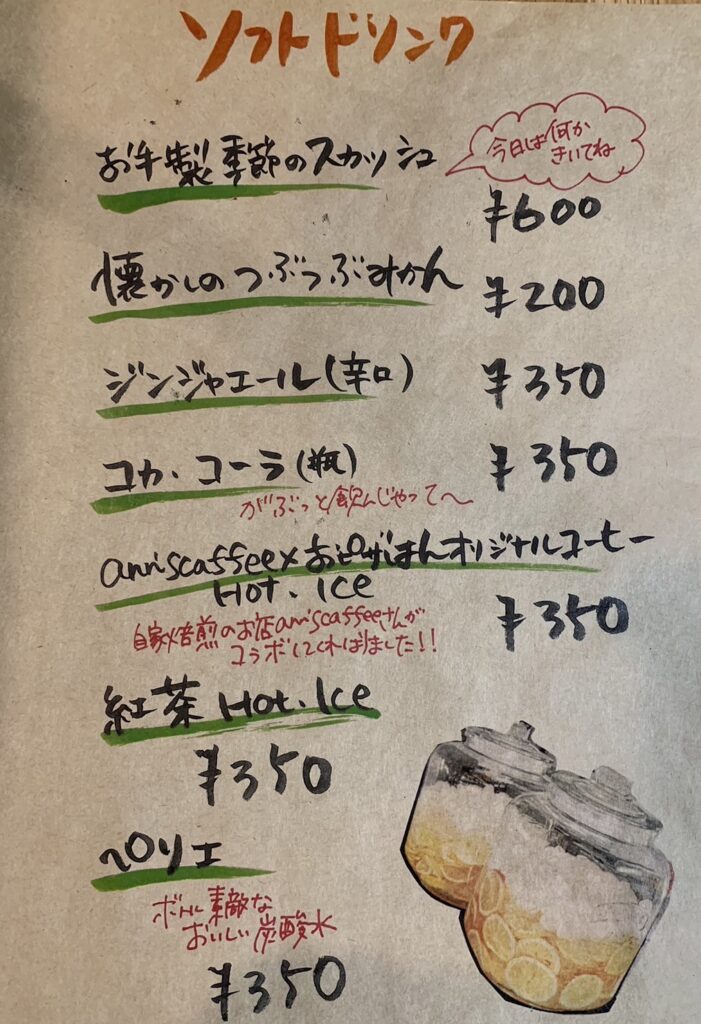 ソフトドリンク
お手製季節のスカッシュ
今日は何か
きいてね
¥600
懐かしのつぶつぶみかん
¥200
ジンジャエール(辛口)
¥350
コカ・コーラ(瓶)
¥350
がぶっと飲んじゃって〜
anniscaffee×おピザばんオリジナルコーヒー
Hot・Ice
¥350
自家焙煎のお店anniscaffeeさんが
コラボしてくれはりました!!
紅茶 Hot・Ice
¥350
ペリエ
ボトル素敵な
おいしい炭酸水
¥350